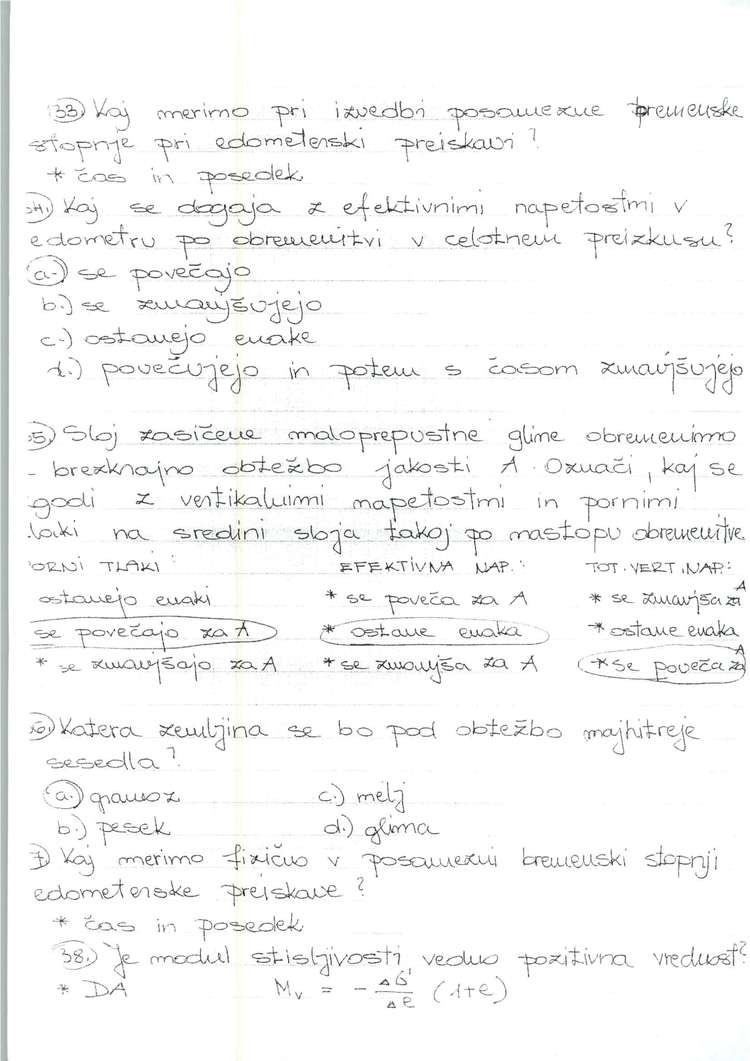 33.) Kaj merimo pri izvedbi posamezne bremenske
stopnje pri edometerski preiskavi?
* čas in posedek
34.) Kaj se dogaja z efektivnimi napetostmi v
edometru po obremenitvi v celotnem preizkusu?
a.) se povečajo
b.) se zmanjšujejo
c.) ostanejo enake
d.) povečujejo in potem s časom zmanjšujejo
5.) Sloj zasičene maloprepustne gline obremenimo
- brezknajno obtežbo jakosti A. Označi, kaj se
godi z vertikalnimi napetostmi in pornimi
laki na sredini sloja takoj po nastopu obremenitve.
ORNI TLAKI: EFEKTIVNA NAP.: TOT. VERT. NAP.:
ostanejo enaki * se poveča za A * se zmanjša za A
se povečajo za A * ostane enaka * ostane enaka
* se zmanjšajo za A * se zmanjša za A * se poveča za A
6.) Katera zemljina se bo pod obtežbo najhitreje
sesedla?
a.) gramoz c.) melj
b.) pesek d.) glina
7.) Kaj merimo fizično v posamezni bremenski stopnji
edometerske preiskave?
* čas in posedek
38.) Je modul stisljivosti vedno pozitivna vrednost?
* DA Mv = - Δσ' / Δe (1+e)